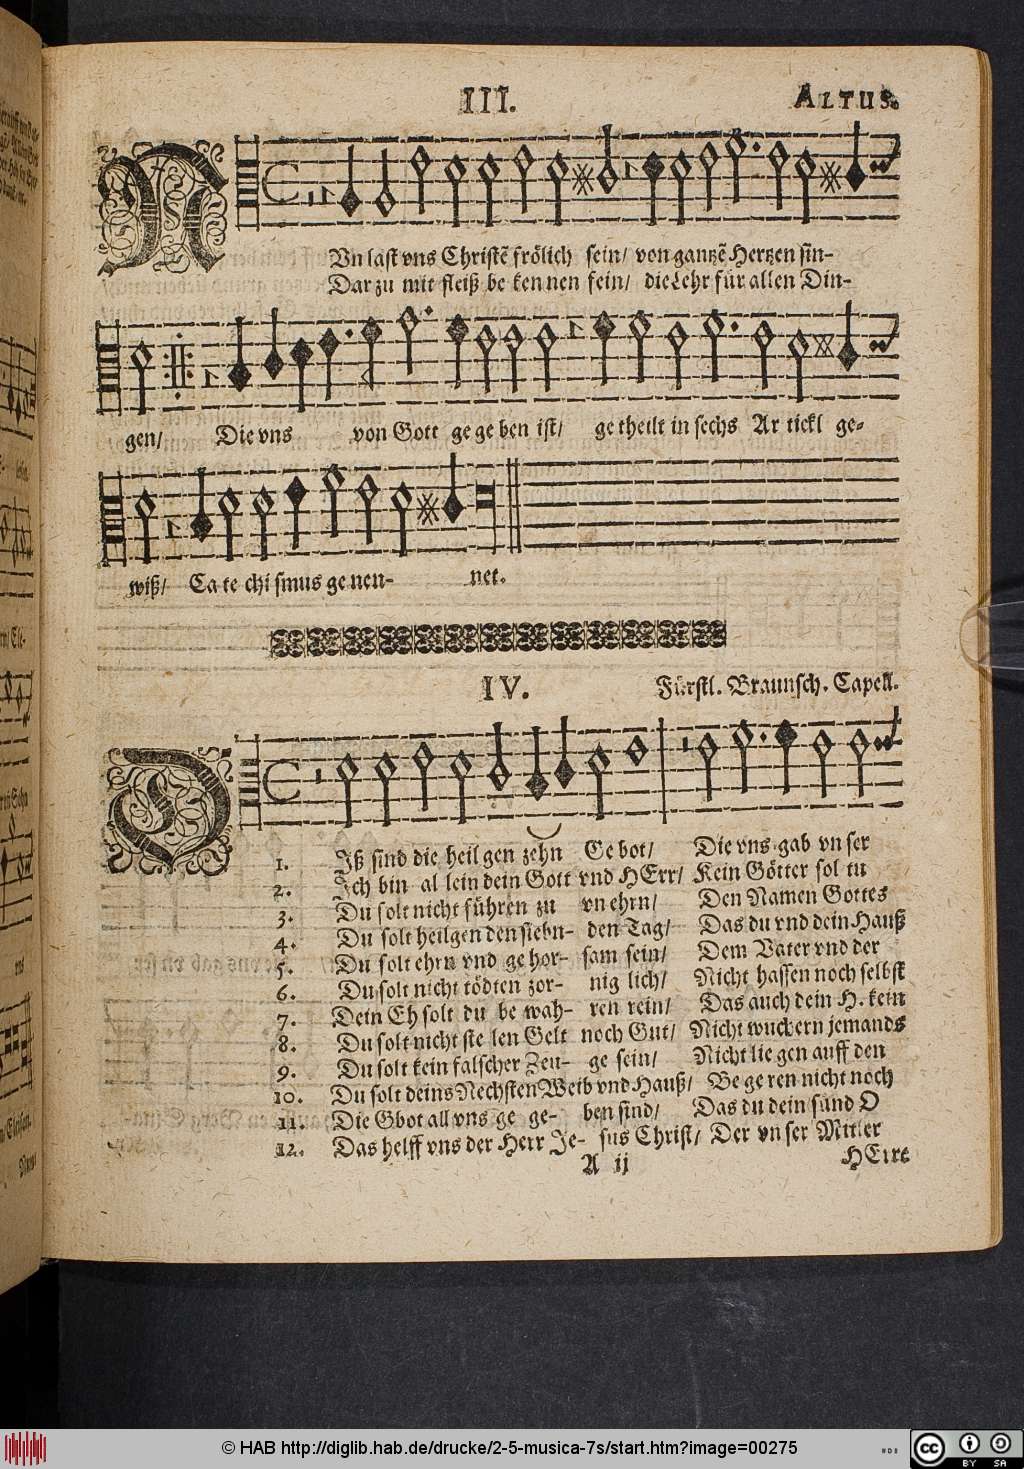 III.
ALTUS.
NVn last vns Christē frölich sein/ von gantzē Hertzen sin-
Dar zu mit fleiß be ken nen fein/ die Lehr für allen Din-
gen/ Die vns von Gott ge ge ben ist/ ge theilt in sechs Ar tickl ge-
wiß/ Ca te chi smus ge nen- net.
IV.
Fürstl. Braunsch. Capell.
1. DIß sind die heil gen zehn Ge bot/ Die vns gab vn ser
2. Ich bin al lein dein Gott vnd HErr/ Kein Götter sol tu
3. Du solt nicht führen zu vn ehrn/ Den Namen Gottes
4. Du solt heilgen den siebn- den Tag/ Das du vnd dein Hauß
5. Du solt ehrn vnd ge hor- sam sein/ Dem Vater vnd der
6. Du solt nicht tödten zor- nig lich/ Nicht hassen noch selbst
7. Dein Eh solt du be wah- ren rein/ Das auch dein H. kein
8. Du solt nicht ste len Gelt noch Gut/ Nicht wuchern jemands
9. Du solt kein falscher Zeu- ge sein/ Nicht lie gen auff den
10. Du solt deins Nechsten Weib vnd Hauß/ Be ge ren nicht noch
11. Die Gbot all vns ge ge- ben sind/ Das du dein sünd O
12. Das helff vns der Herr Je- sus Christ/ Der vn ser Mitler
A ij
HErre
© HAB http://diglib.hab.de/drucke/2-5-musica-7s/start.htm?image=00275
cc BY SA